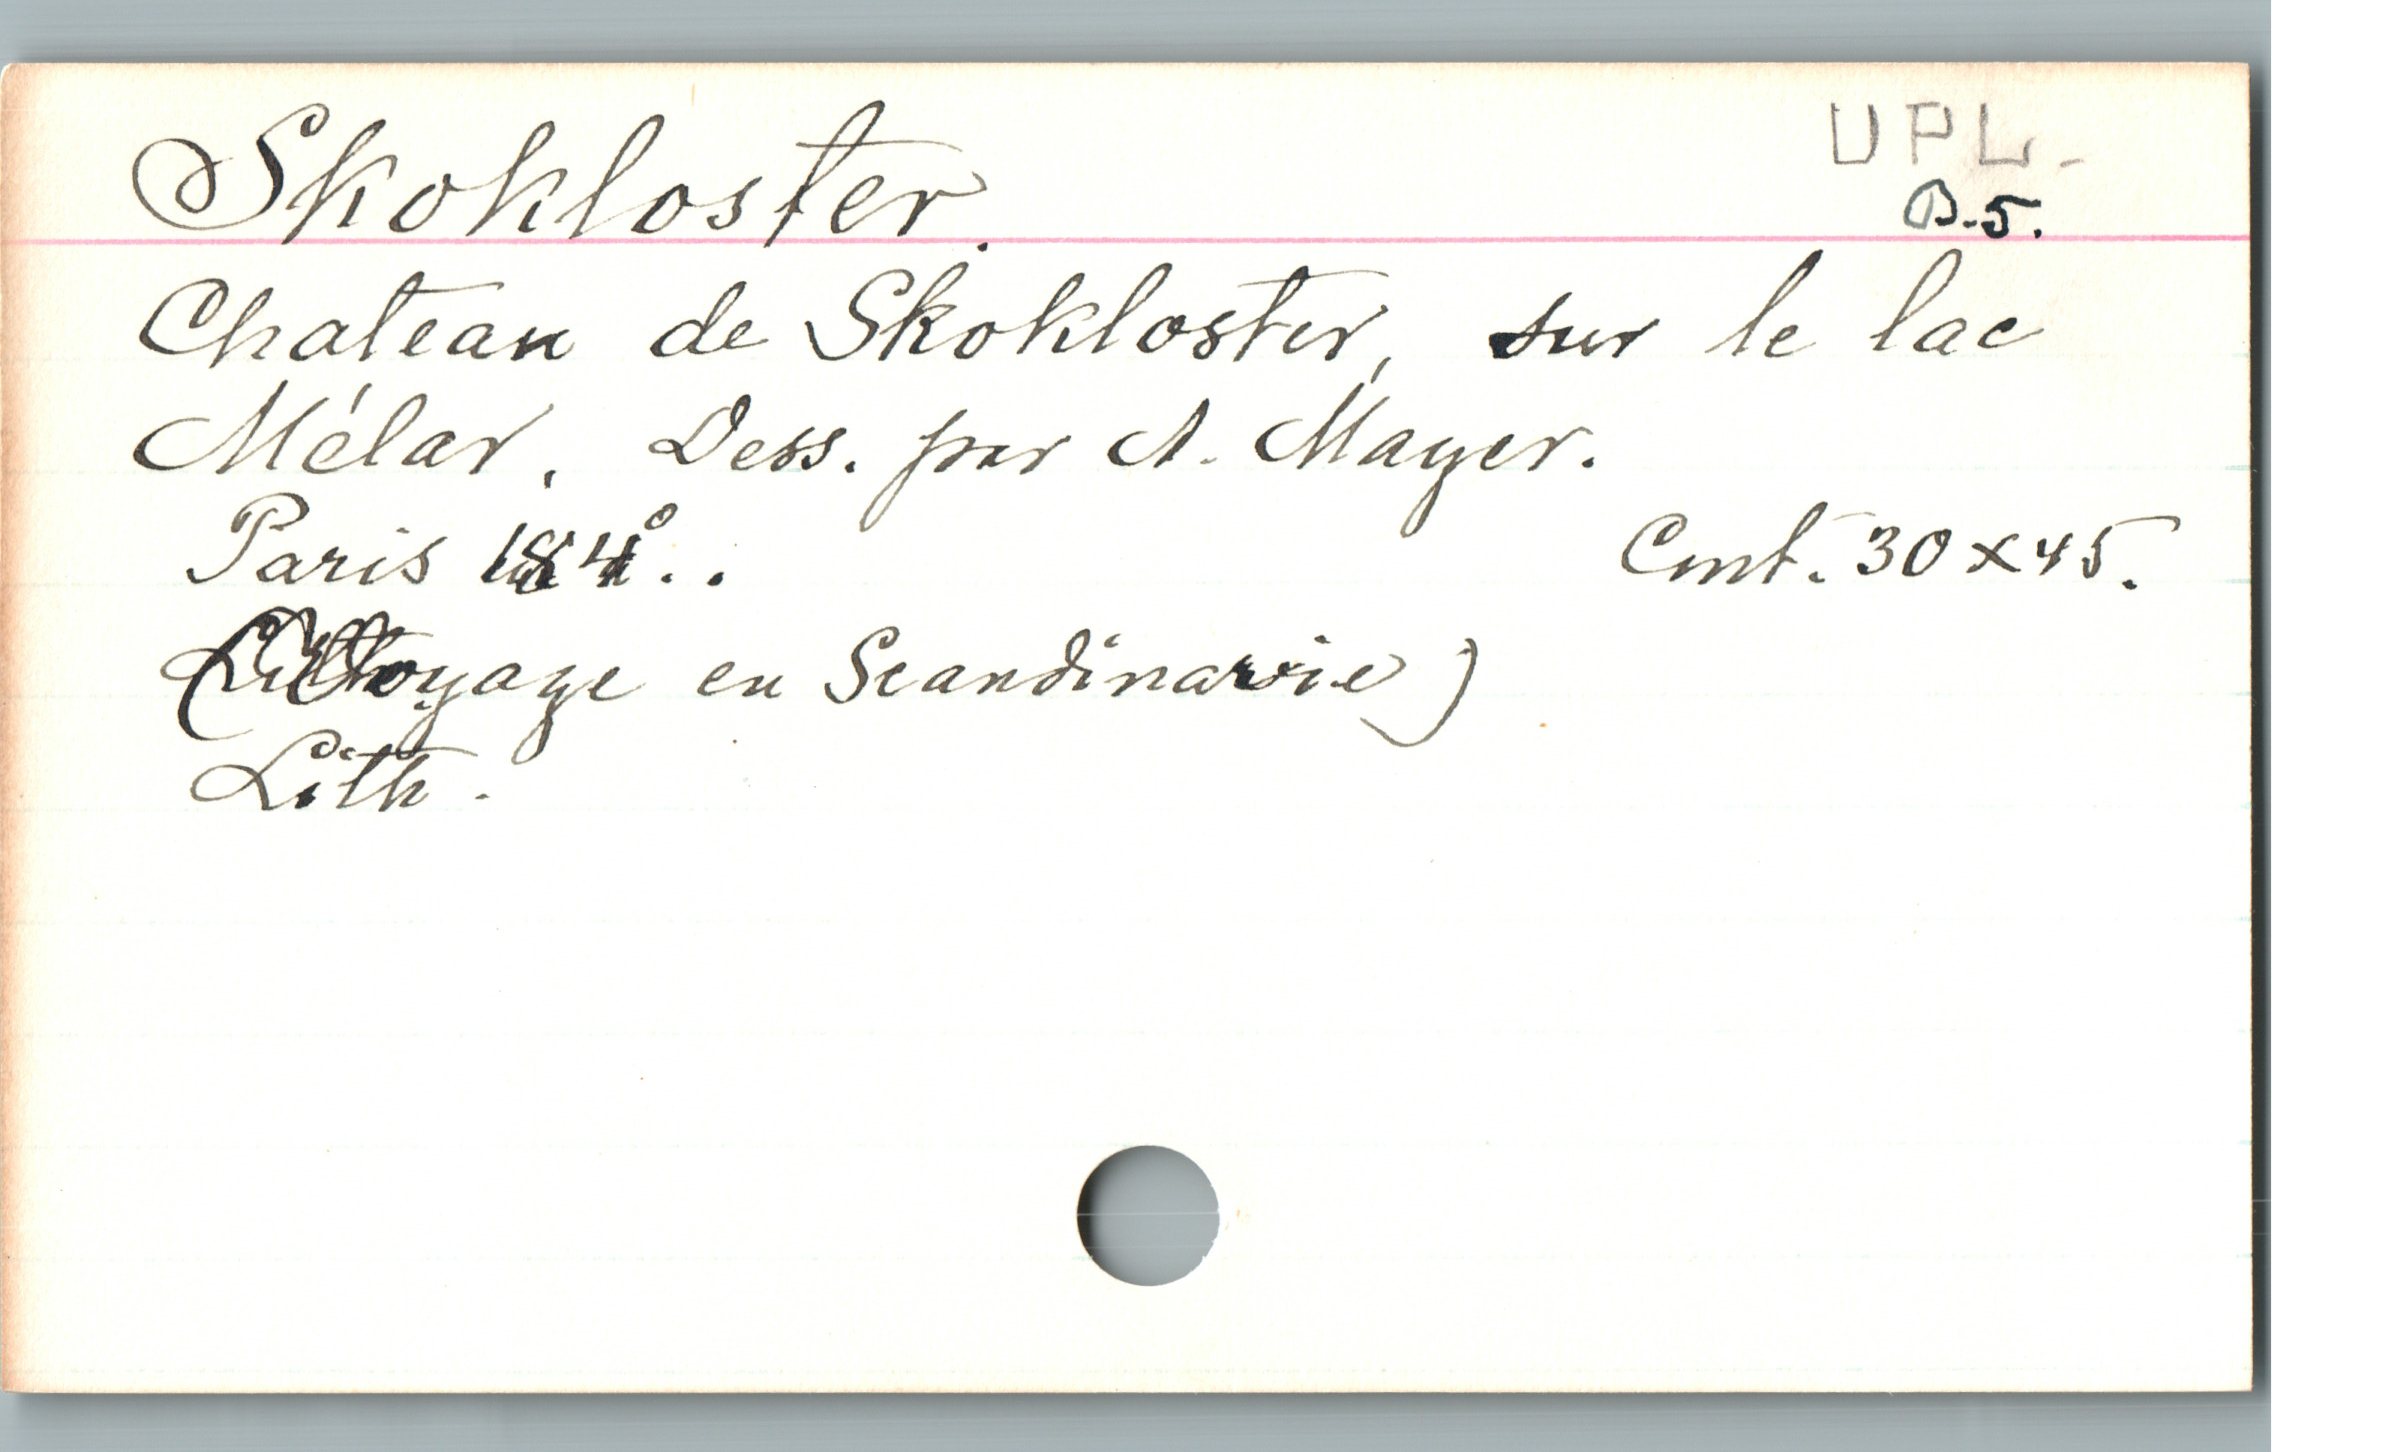 Skokloster.
UPL.
B.5.
Chateau de Skokloster, sur le lac
Mélar. Dess. par A. Mayer.
Paris 184.. Cmt. 30 x 45.
(Voyage en Scandinavie)
Lith.